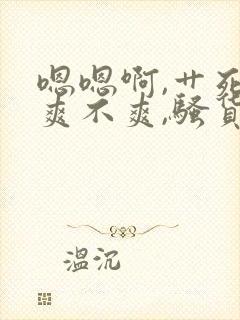 嗯嗯啊,艹死
爽不爽,骚货
温沉